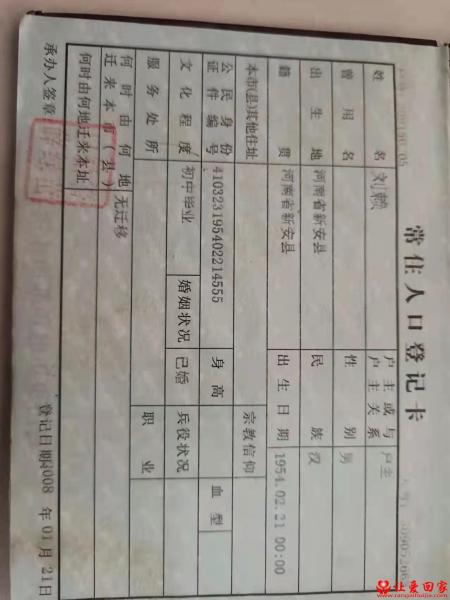 常住人口登记卡
姓名 刘赖 户主或与户主关系 户主
曾用名 性别 男
出生地 河南省新安县 民族 汉
籍贯 河南省新安县 出生日期 1954.02.21 00:00
本市(县)其他住址 宗教信仰
公民身份证件编号 410323195402214555 身高 血型
文化程度 初中毕业 婚姻状况 已婚 兵役状况
服务处所 职业
何时由何地迁来本市(县) 无迁移
何时由何地迁来本址
承办人签章 登记日期 2008 年 01 月 21 日
让爱回家
www.rangaihuijia.com